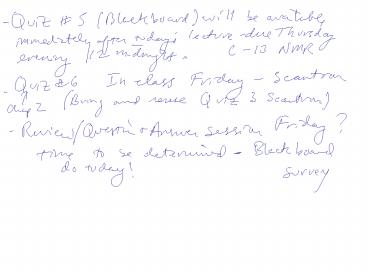 - Quiz # 5 (Blackboard) will be available
immediately after today's lecture - due Thursday
evening /12 midnight. C-13 NMR
- Quiz # 6 In class Friday - Scantron
(Bring and reuse Quiz 3 Scantron)
- Review/Question & Answer Session Friday?
time to be determined - Blackboard
do today! Survey